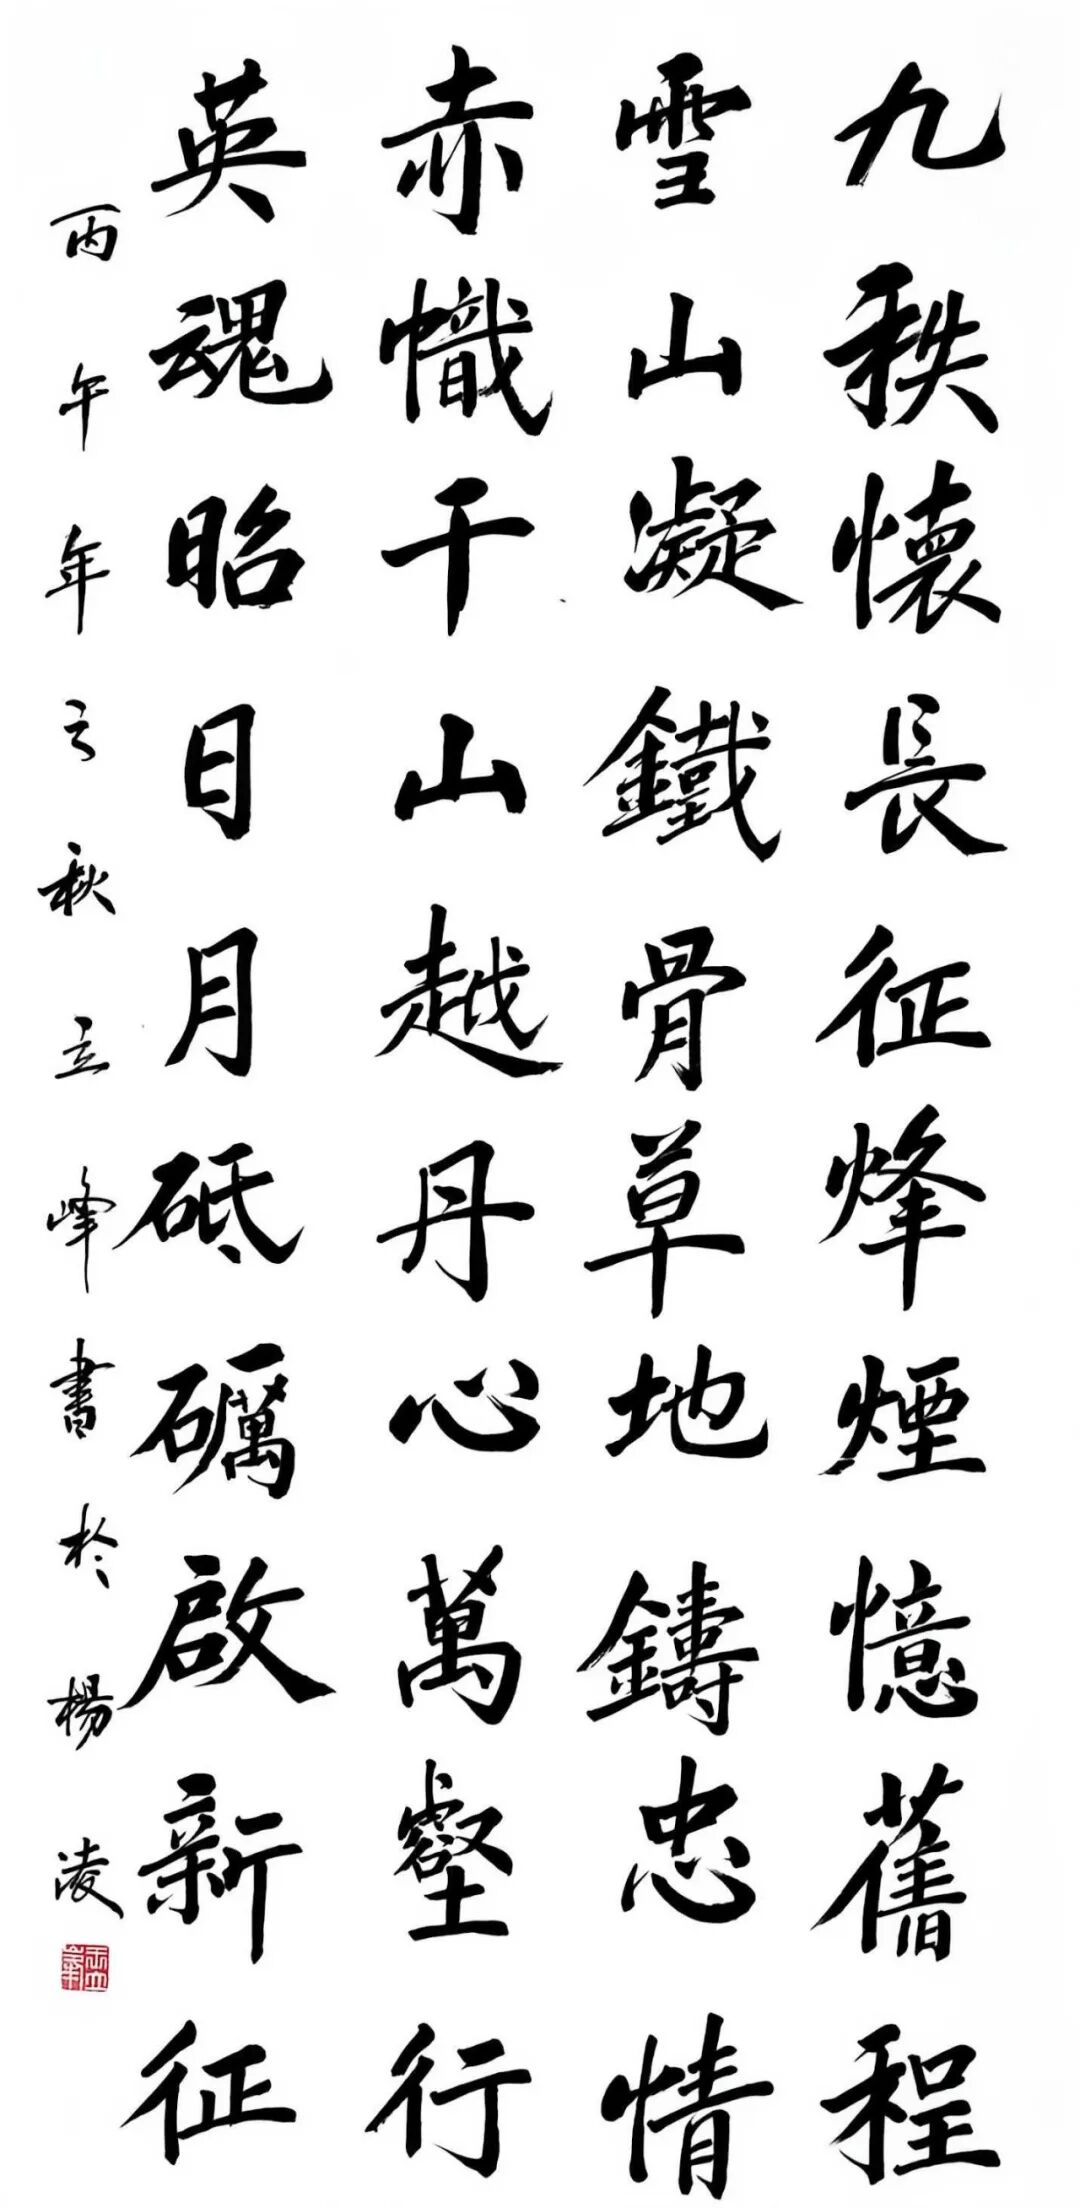 九秩懷長征烽煙憶舊程
雪山凝鐵骨草地鑄忠情
赤幟千山越丹心萬壑行
英魂昭日月砥礪啟新征
丙午年之秋立峰書於楊凌